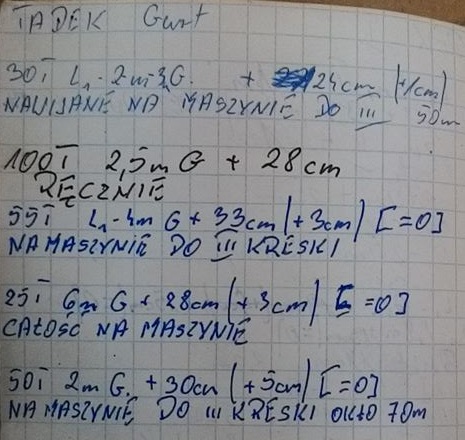 TADEK Gurt
30T L1-2m-3G. + 24cm (+1cm)
NAWIJANE NA MASZYNIE DO III 50m
100T 2,5m G + 28cm
RĘCZNIE
55T L1-4m G + 33cm (+3cm) [=0]
NA MASZYNIE DO III KRESKI
25T 6m G. + 28cm (+3cm) [=0]
CAŁOŚĆ NA MASZYNIE
50T 2m G. +30cm (+5cm) [=0]
NA MASZYNIE DO III KRESKI OKŁO 70m